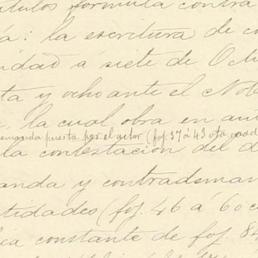 tulos formula contra
la: la escritura de co
ridad a siete de Och
ta y ocho ante el Not
la cual obra en au
emanda puesta por el actor (foj. 37 á 43 ota cuad
la contestacion del d
anda y contrademan
tidades (foj. 46 á 60 c
constante de foj. 8